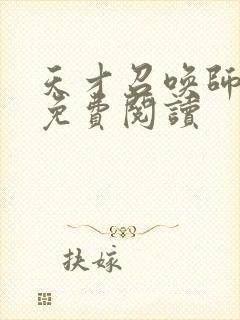 天才召唤師
免費閱讀
扶嫁